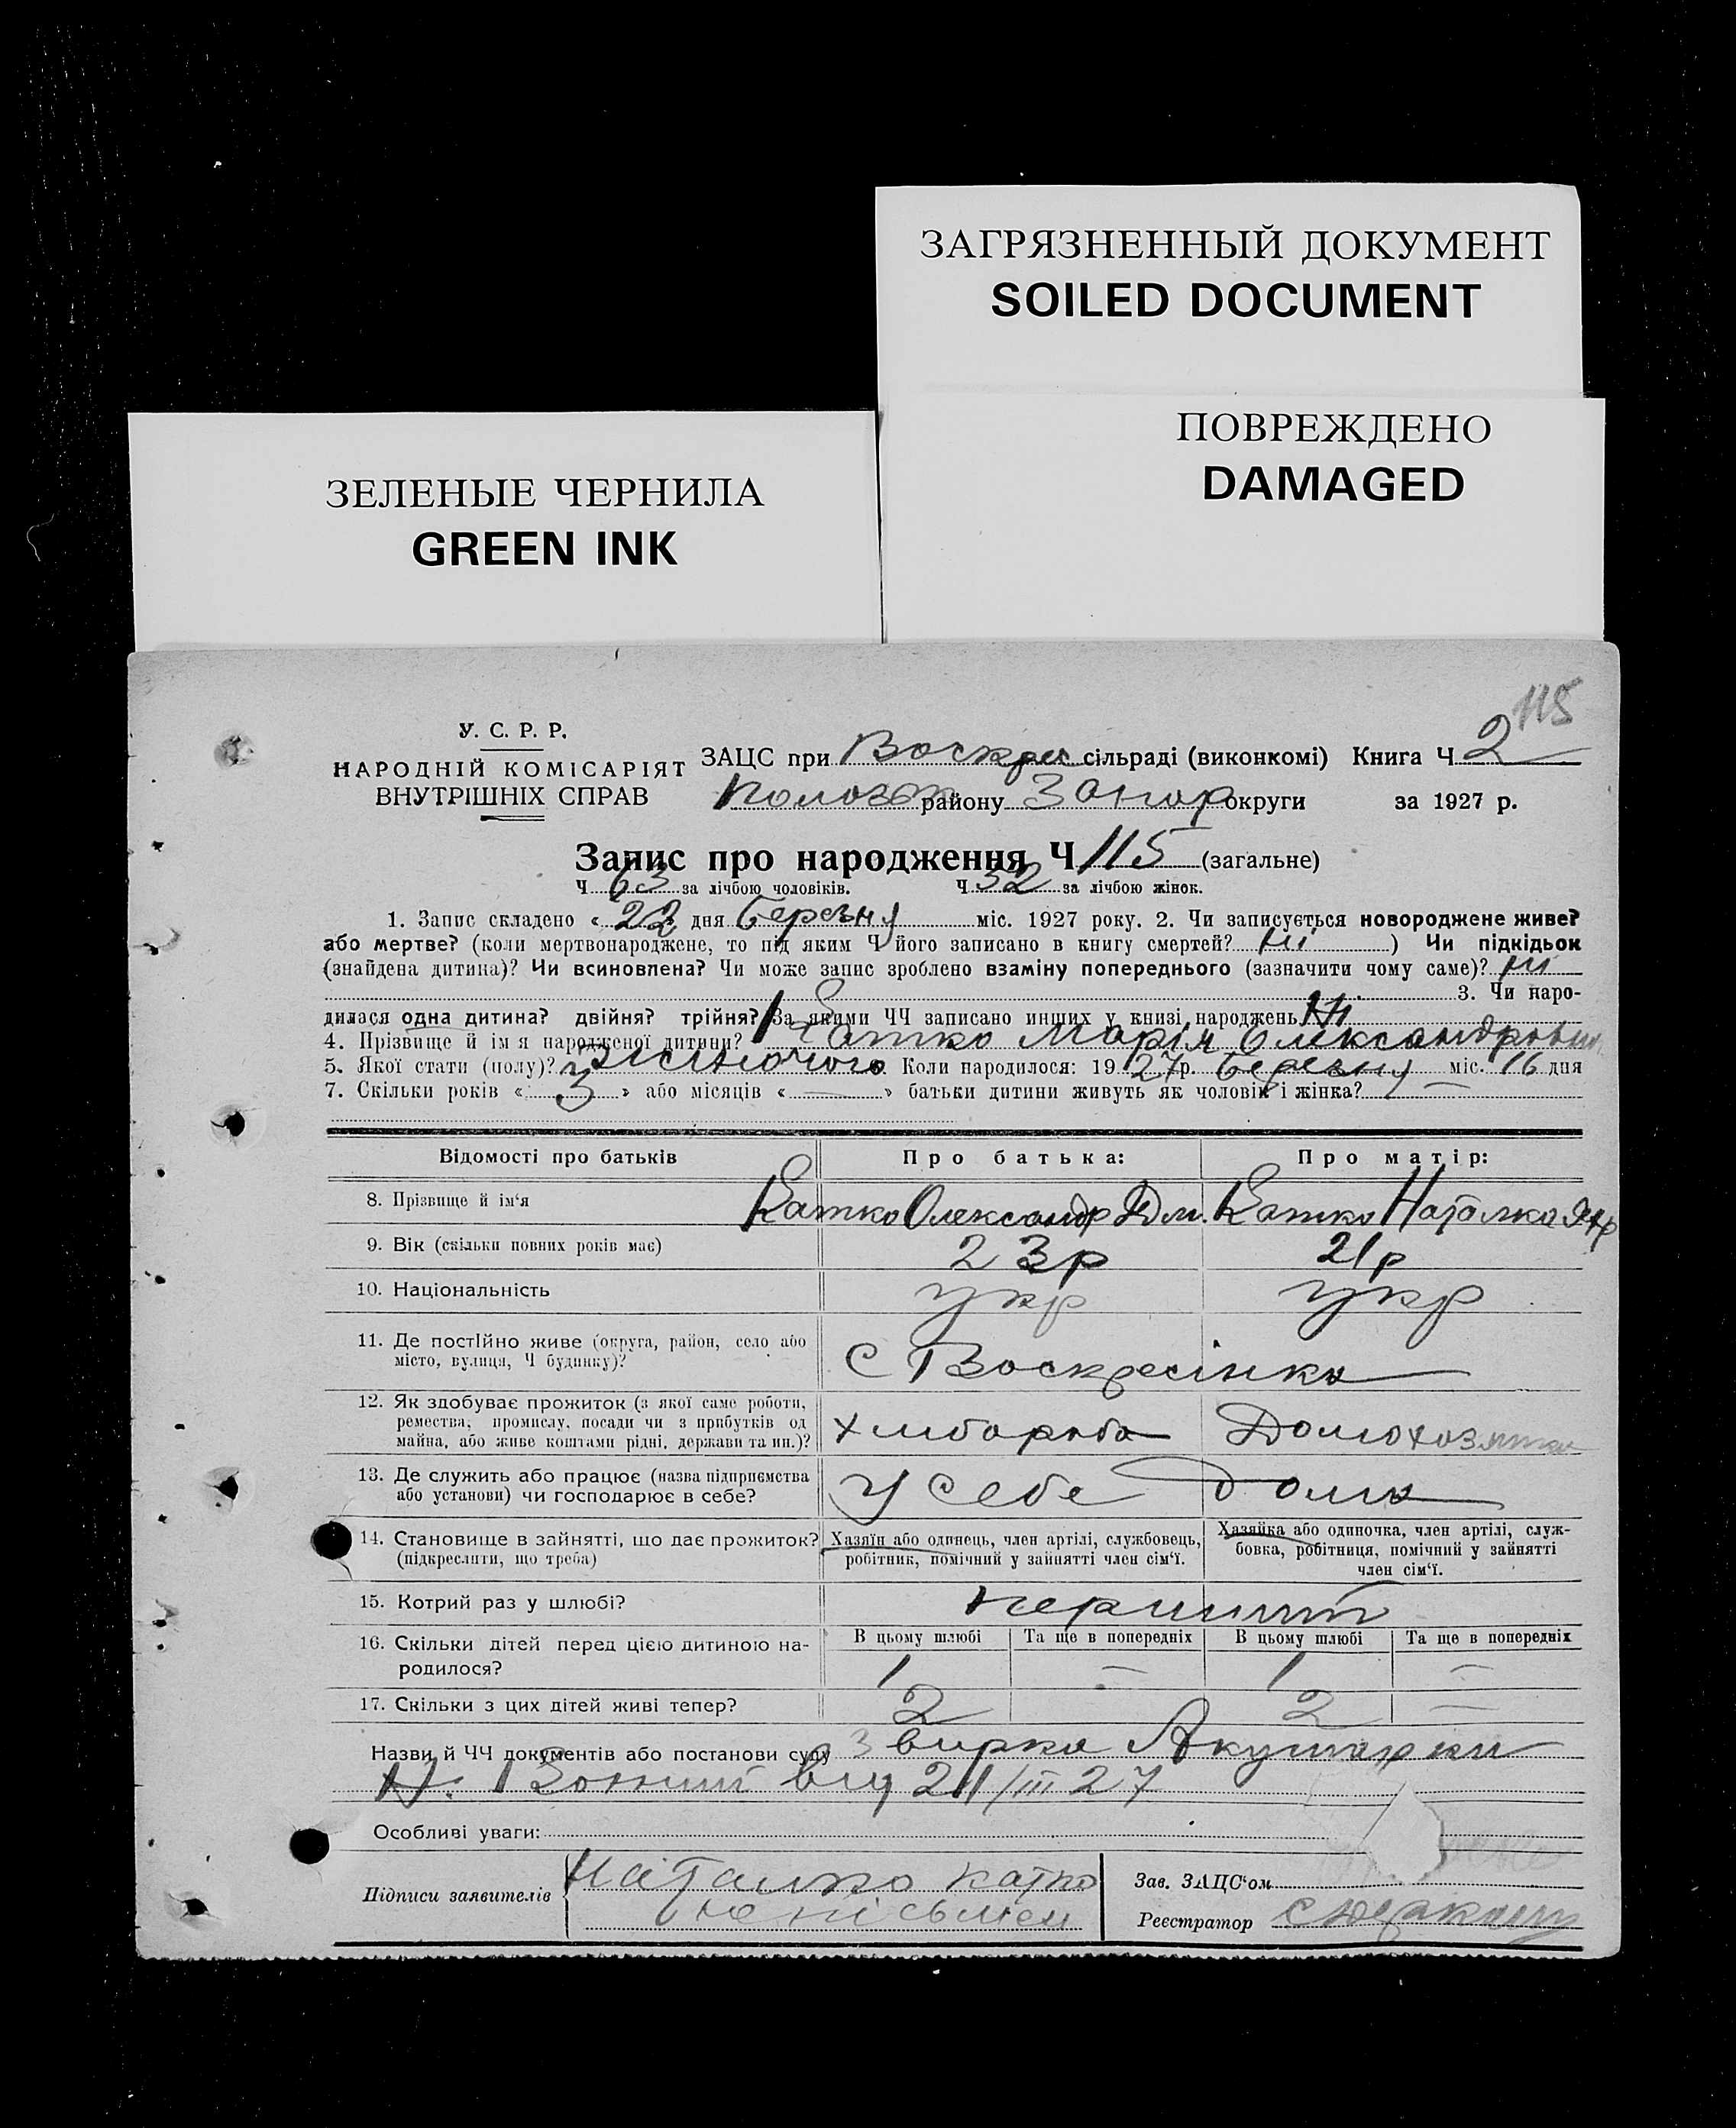 ЗАГРЯЗНЕННЫЙ ДОКУМЕНТ
SOILED DOCUMENT
ПОВРЕЖДЕНО
DAMAGED
ЗЕЛЕНЫЕ ЧЕРНИЛА
GREEN INK
115
У. С. Р. Р.
НАРОДНІЙ КОМІСАРІЯТ
ВНУТРІШНІХ СПРАВ
ЗАЦС при Воскрес сільраді (виконкомі) Книга Ч 2
району Запор округи за 1927 р.
Запис про народження Ч 115 (загальне)
Ч 63 за лічбою чоловіків. Ч 52 за лічбою жінок.
1. Запис складено « 22 дня Березня міс. 1927 року. 2. Чи записується новороджене живе?
або мертве? (коли мертвонароджене, то під яким Ч його записано в книгу смертей? ні ) Чи підкідьок
(знайдена дитина)? Чи всиновлена? Чи може запис зроблено взаміну попереднього (зазначити чому саме)? ні
3. Чи наро-
дилася одна дитина? двійня? трійня? За якими ЧЧ записано инших у книзі народжень Ні
4. Прізвище й ім я народженої дитини? Катко Марія Олександровна
5. Якої стати (полу)? Жіночого Коли народилося: 19 27 р. Березня міс. 16 дня
7. Скільки років « 3 » або місяців « — » батьки дитини живуть як чоловік і жінка? —
Відомості про батьків Про батька: Про матір:
8. Прізвище й ім‘я Катко Олександр Дм. Катко Наталка
9. Вік (скільки повних років має) 23р 21р
10. Національність укр укр
11. Де постІйно живе (округа, район, село або
місто, вулиця, Ч будинку)? С Воскресінка
12. Як здобуває прожиток (з якої саме роботи,
ремества, промислу, посади чи з прибутків од
майна, або живе коштами рідні, держави та ин.)? хлібороба Домохозяйка
13. Де служить або працює (назва підприємства
або установи) чи господарює в себе? У себе дома
14. Становище в зайнятті, що дає прожиток?
(підкреслити, що треба)
Хазяїн або одинець, член артілі, службовець,
робітник, помічний у зайнятті член сім‘ї.
Хазяйка або одиночка, член артілі, служ-
бовка, робітниця, помічний у зайнятті
член сім‘ї.
15. Котрий раз у шлюбі? перший
16. Скільки дітей перед цією дитиною на-
родилося?
В цьому шлюбі Та ще в попередніх В цьому шлюбі Та ще в попередніх
1 — 1 —
17. Скільки з цих дітей живі тепер? 2 2 —
Назви й ЧЧ документів або постанови суду Акушерки
від 21/III 27
Особливі уваги:
Підписи заявителів Наталко Катко
Зав. ЗАЦС‘ом
Реєстратор